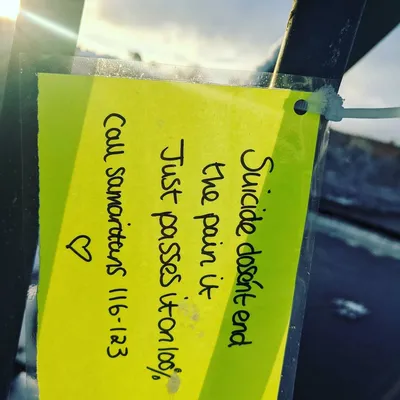 Suicide dosen't end
the pain it
Just passes it on 100%
Call samaritans 116-123
♡